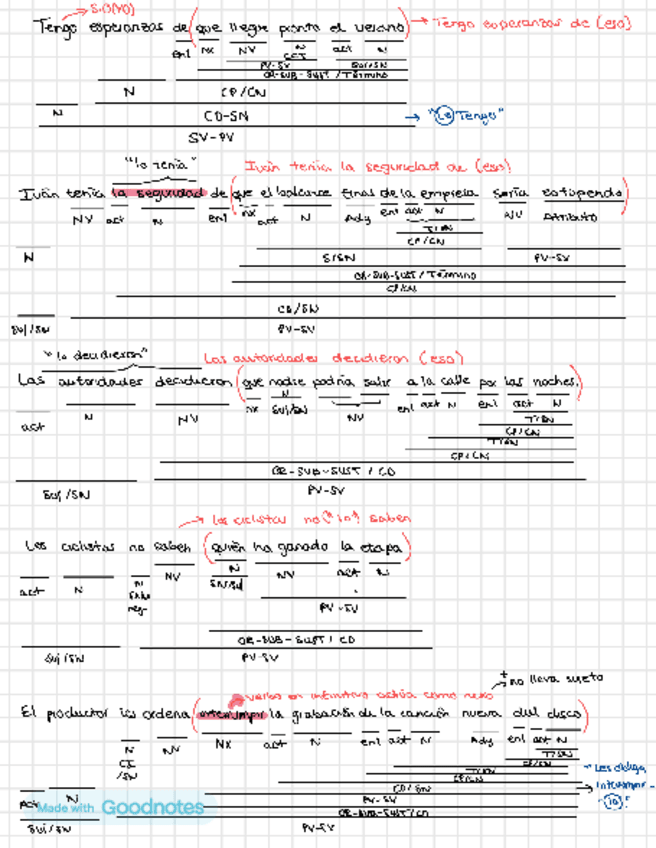 S.O(YO)
Tengo esperanzas de (que llegue pronto el verano) → Tengo esperanzas de (eso)
enl NX NV N act N
CCT
PV-SV Suj/SN
OR-SUB-SUST / Término
N CP/CN
N CD-SN → "Las Tengo"
SV-PV
"la tenía" Iván tenía la seguridad de (eso)
Iván tenía la seguridad de (que el balance final de la empresa sería estupendo)
NV act N enl nx act N Adj enl act N NV Atributo
T/SN
CP/CN
N S/SN PV-SV
OR-SUB-SUST / Término
CP/CN
CD/SN
Suj/SN PV-SV
"lo decidieron" Las autoridades decidieron (eso)
Las autoridades decidieron (que nadie podría salir a la calle por las noches.)
act N NV nx N NV enl act N enl act N
Suj/SN
T/SN
CP/CN
T/SN
CP/CN
OR-SUB-SUST / CD
Suj/SN PV-SV
→ los ciclistas no ("lo") saben
Los ciclistas no saben (quién ha ganado la etapa)
act N N NV N NV act N
SN/Suj
neg.
PV-SV
OR-SUB-SUST / CD
Suj/SN PV-SV
no lleva sujeto
verbo en infinitivo actúa como nexo
El productor les ordena (interrumpir la grabación de la canción nueva del disco)
N NV NX act N enl act N Adj enl act N
CI
/SN
T/SN
CP/CN
T/SN
CP/CN
CD/SN
Act N PV-SV
OR-SUB-SUST/CD
Suj/SN PV-SV
Les obliga
interrumpir-
"la".
Made with Goodnotes